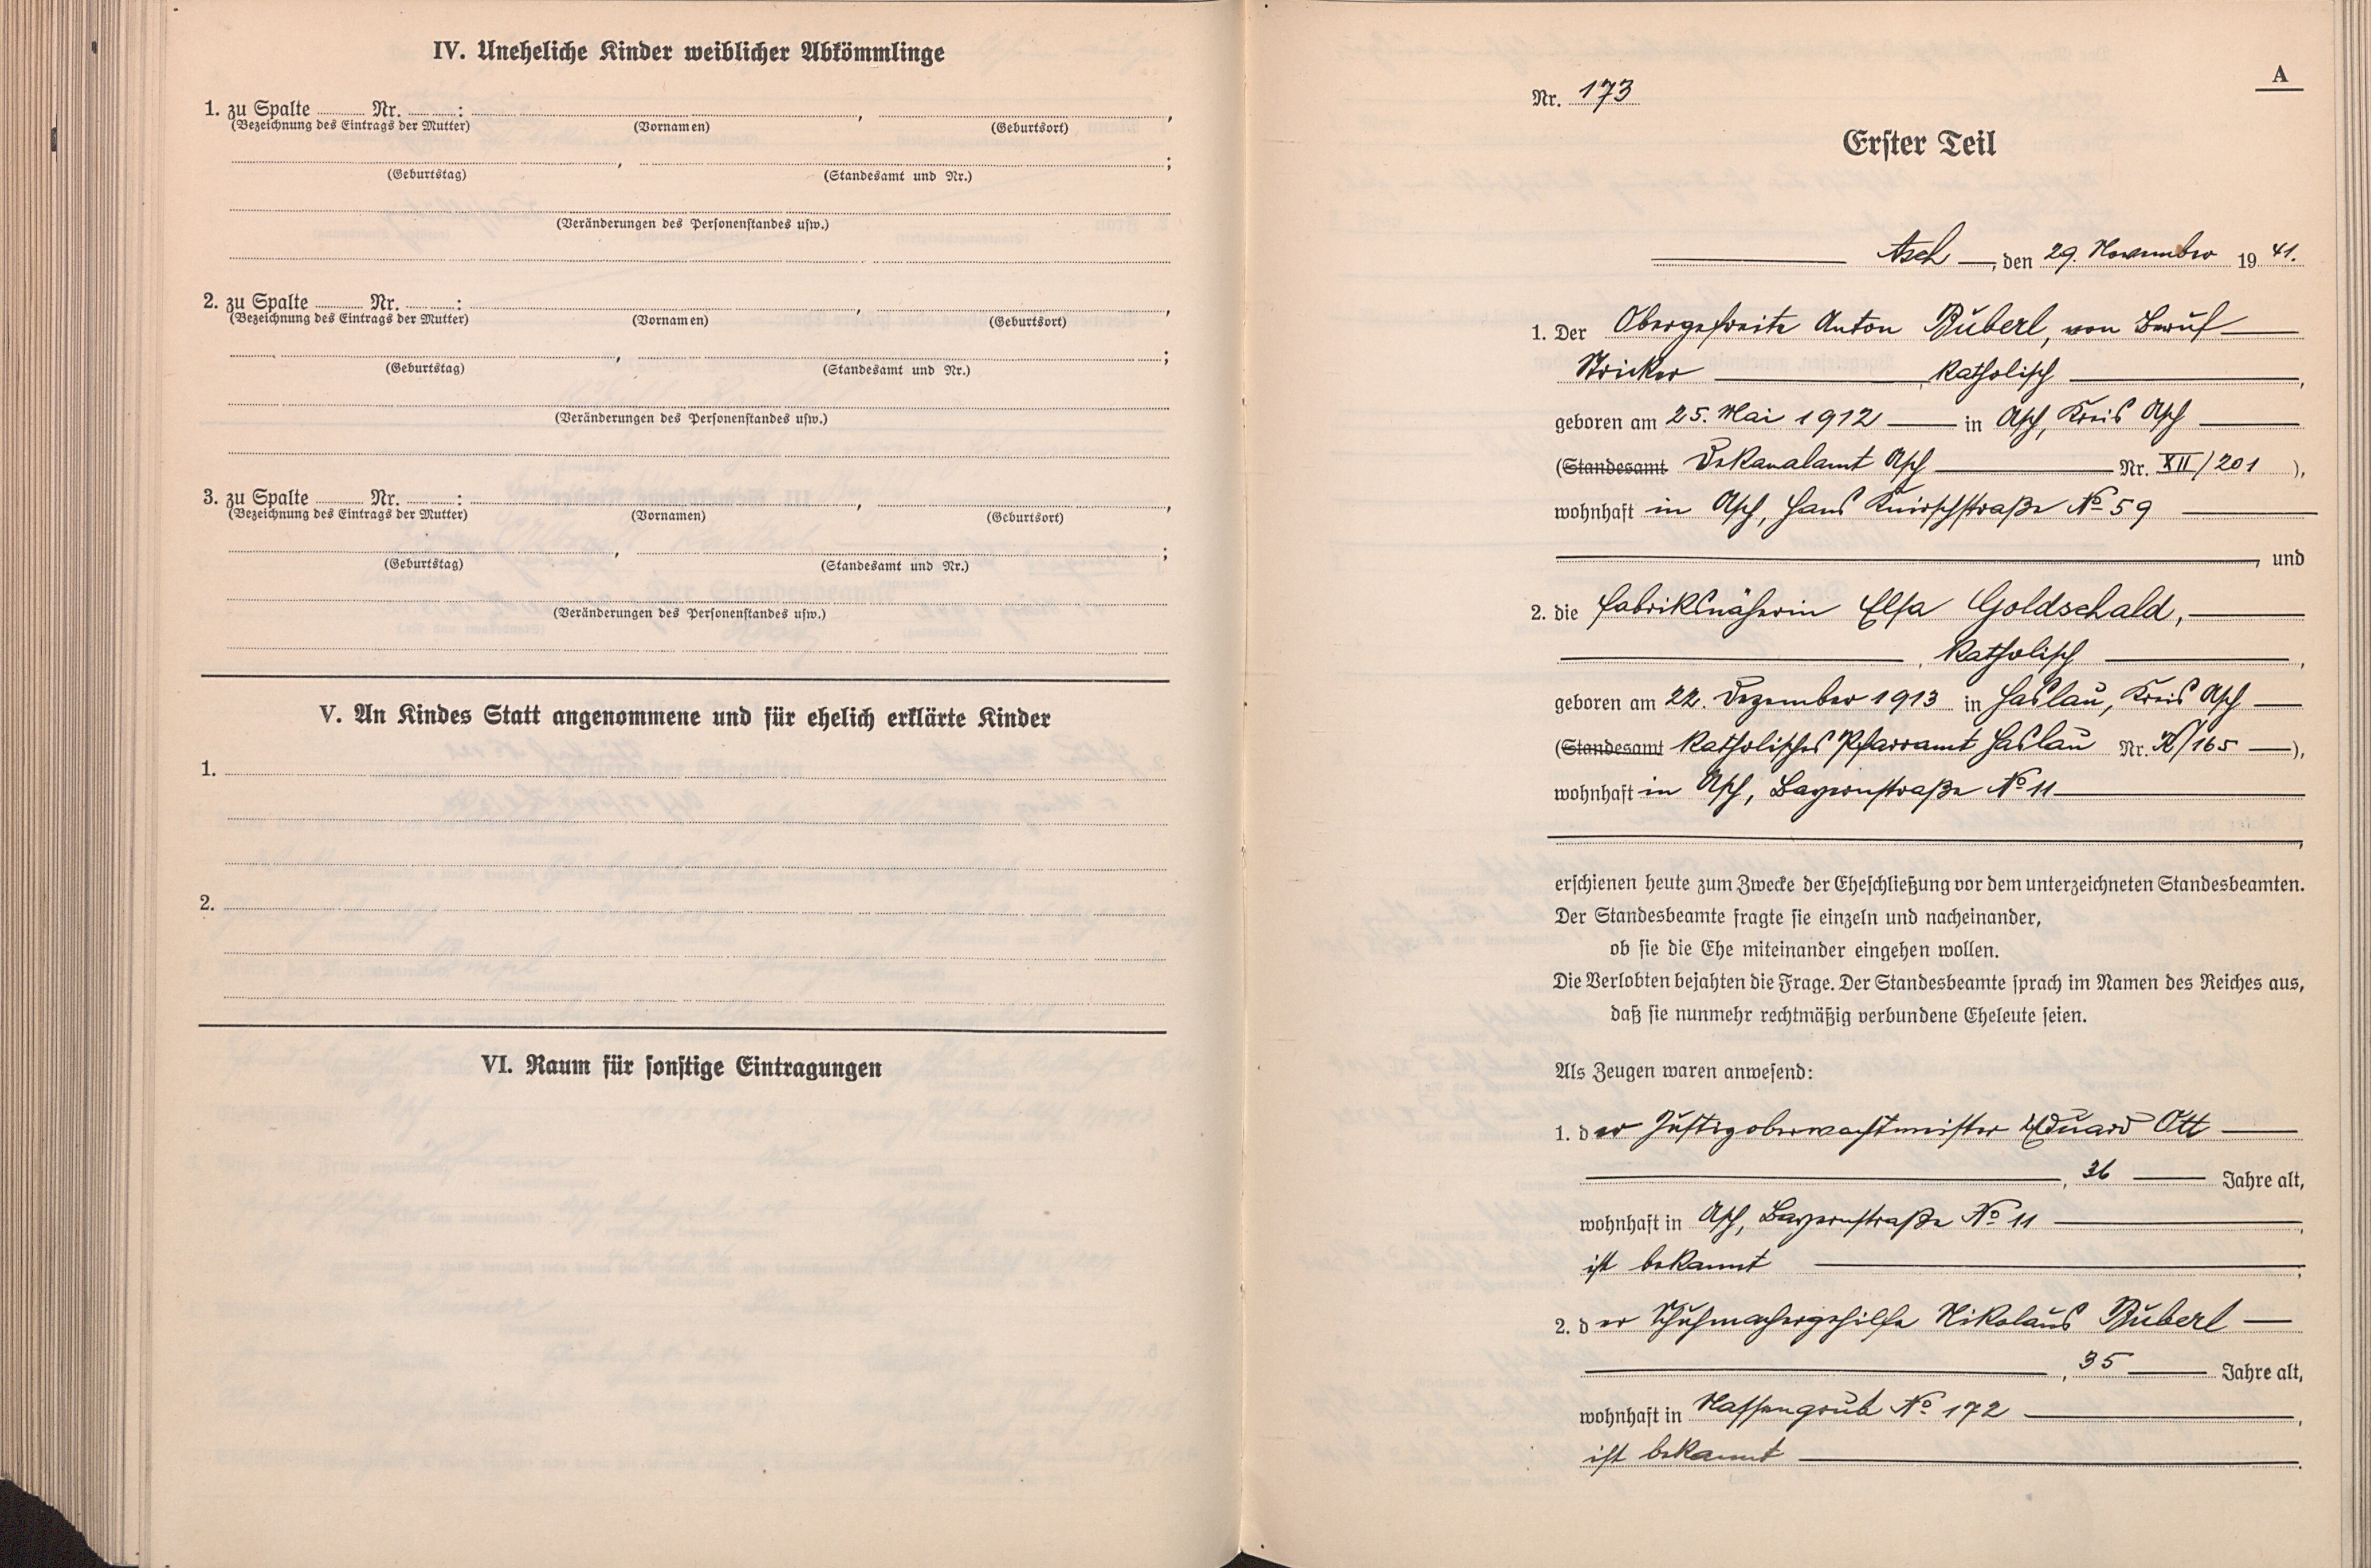 IV. Uneheliche Kinder weiblicher Abkömmlinge
1. zu Spalte ........ Nr. ........: ........, ........,
(Bezeichnung des Eintrags der Mutter) (Vornamen) (Geburtsort)
........, ........;
(Geburtstag) (Standesamt und Nr.)
(Veränderungen des Personenstandes usw.)
2. zu Spalte ........ Nr. ........: ........, ........,
(Bezeichnung des Eintrags der Mutter) (Vornamen) (Geburtsort)
........, ........;
(Geburtstag) (Standesamt und Nr.)
(Veränderungen des Personenstandes usw.)
3. zu Spalte ........ Nr. ........: ........, ........,
(Bezeichnung des Eintrags der Mutter) (Vornamen) (Geburtsort)
........, ........;
(Geburtstag) (Standesamt und Nr.)
(Veränderungen des Personenstandes usw.)
V. An Kindes Statt angenommene und für ehelich erklärte Kinder
1.
2.
VI. Raum für sonstige Eintragungen
A
Nr. 173
Erster Teil
Asch, den 29. November 19 41.
1. Der Obergefreite Anton Püberl, von Beruf
Stricker, katholisch,
geboren am 25. Mai 1912 in Asch, Kreis Asch
(Standesamt Dekanalamt Asch Nr. XII/201 ),
wohnhaft in Asch, Hans Knirschstraße No 59
, und
2. die Fabriksnäherin Elsa Goldschald,
, katholisch,
geboren am 22. Dezember 1913 in Haslau, Kreis Asch
(Standesamt Katholisches Pfarramt Haslau Nr. /165 ),
wohnhaft in Asch, Bayernstraße No 11
,
erschienen heute zum Zwecke der Eheschließung vor dem unterzeichneten Standesbeamten.
Der Standesbeamte fragte sie einzeln und nacheinander,
ob sie die Ehe miteinander eingehen wollen.
Die Verlobten bejahten die Frage. Der Standesbeamte sprach im Namen des Reiches aus,
daß sie nunmehr rechtmäßig verbundene Eheleute seien.
Als Zeugen waren anwesend:
1. der Justizoberwachtmeister Eduard Ott
, 36 Jahre alt,
wohnhaft in Asch, Bayernstraße No 11,
ist bekannt;
2. der Schuhmachergehilfe Nikolaus Püberl
, 35 Jahre alt,
wohnhaft in Nassengrub No 172,
ist bekannt.